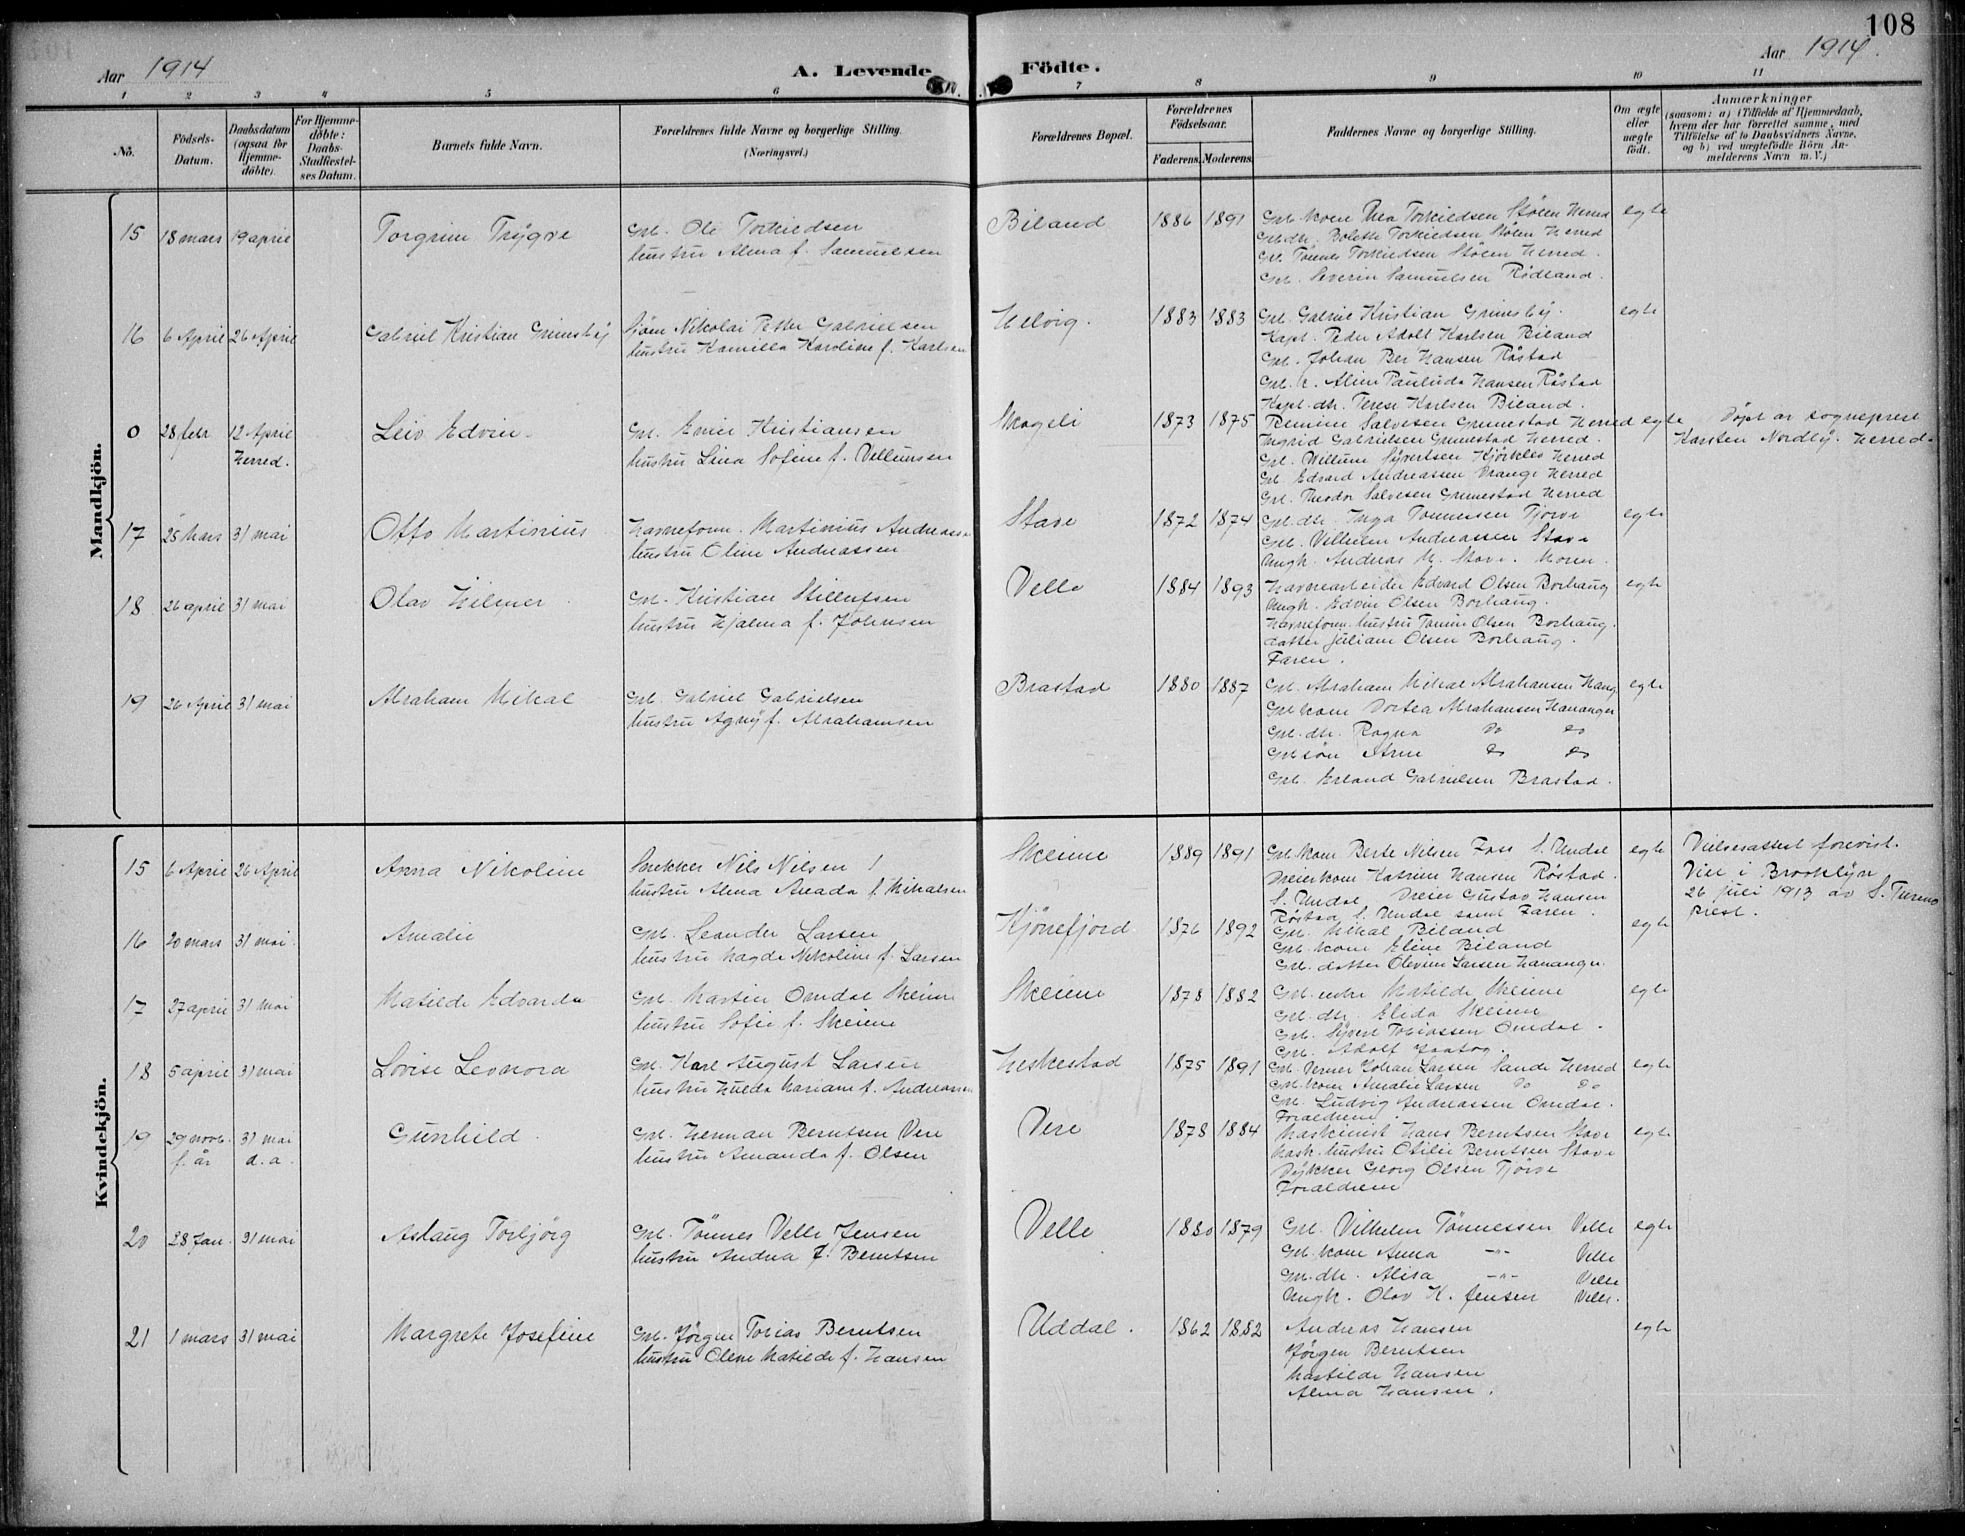 108
Aar 1914
A. Levende Födte.
Aar 1914.
1 2 3 4 5 6 7 8 9 10 11
No.
Födsels-Datum.
Daabsdatum (ogsaa for Hjemme-döbte).
For Hjemme-döbte: Daabs-Stadfæstel-ses Datum.
Barnets fulde Navn.
Forældrenes fulde Navne og borgerlige Stilling.
(Næringsvei.)
Forældrenes Bopæl.
Forældrenes Födselsaar.
Faderens. Moderens.
Faddernes Navne og borgerlige Stilling.
Om ægte eller uægte födt.
Anmærkninger
(saasom: a) i Tilfælde af Hjemmedaab,
hvem der har forrettet samme, med
Tilföielse af to Daabsvidners Navne,
og b) ved uægtefödte Börn An-
melderens Navn m. V.)
Mandkjön.
15 18 mars 19 april Torgrim Trygve
Gbr. Ole Torkildsen
hustru Alma f. Samuelsen
Biland 1886 1891
Gbr. kone Thea Torkildsen Stølen Herred egte
Gbr. dtr. Bolette Torkildsen Stølen Herred
Gbr. Tønnes Torkildsen Stølen Herred.
Gbr. Severin Samuelsen Rödland.
16 6 April 26 April Gabriel Kristian Grimsby
Sjøm Nikolai Petter Gabrielsen
hustru Kamilla Karoline f. Karlsen
Helvig. 1883 1883
Gbr. Gabriel Kristian Grimsby. egte
Kapt. Peder Adolf Karlsen Biland
Gbr. Johan Ber Hansen Råstad
Gbr. h. Aline Paulida Hansen Råstad
Kapt. dtr. Terese Karlsen Biland.
0 28 febr 12 April Herred. Leiv Edvin
Gbr. Emil Kristiansen
hustru Lina Sofine f. Vellumsen
Skogeli 1873 1875
Salvesen Grimestad Herred egte
Ingrid Gabrielsen Grimestad Herred.
Gbr. Willum Syvertsen Herred
Gbr. Edvard Andreassen Vrange Herred
Gbr. Theodor Salvesen Grimestad Herred
Døpt av sogneprest
Karsten Nordby. Herred.
17 25 Mars 31 mai Otto Martinius
Havneform. Martinius Andreassen
hustru Oline Andreassen
Stave 1872 1874
Gbr. dtr. Inga Tønnessen Tjørve egte
Gbr. Vilhelm Andreassen Stave
Ungk. Andreas M. Stave. Moren.
18 26 april 31 mai Olav Hilmer
Gbr. Kristian
hustru Hjalma f. Johnsen
Velle 1884 1893
Havnearbeider Edvard Olsen Borhaug egte
Ungk. Edvin Olsen Borhaug.
Havneform. hustru Tomine Olsen Borhaug.
datter Juliane Olsen Borhaug.
Faren.
19 26 April 31 mai Abraham Mikal
Gbr. Gabriel Gabrielsen
hustru Agny f. Abrahamsen
Brastad 1880 1887
Gbr. Abraham Mikal Abrahamsen Hanang egte
Gbr kone Dortea Abrahamsen Hananger
Gbr. dtr. Ragna Do Do
Gbr søn Arne Do Do
Gbr. Erland Gabrielsen Brastad.
Kvindekjön.
15 6 April 26 April Anna Nikoline
Snekker Nils Nilsen
hustru Alma Amada f. Mikalsen
Skeime 1889 1891
Gbr. kone Berte Nilsen Foss S. Undal egte
Dreier kone Katrine Hansen Röstad.
S. Undal Dreier Gustav Hansen
Röstad S. Undal samt Faren.
Vielsesattest forevist.
Viet i Brooklyn
26 juli 1913 av S. Turmo
Prest.
16 20 mars 31 mai. Amalie
Gbr. Leander Larsen
hustru Magda Nikoline f. Larsen
Kjørrefjord 1876 1892
Gbr. Mikal Biland egte
Gbr. kone Eline Biland
Gbr. datter Olevine Larsen Hananger.
17 27 april 31 mai Matilde Edvarda
Gbr. Martin Omdal Skeime
hustru Sofie f. Skeime
Skeime 1878 1882
Gbr. enke Matilde Skeime egte
Gbr. dtr. Elida Skeime
Gbr. Syvert Tobiassen Omdal.
Gbr. Adolf
18 5 april 31 mai Lovise Leonora
Gbr. Karl August Larsen
hustru Hulda Mariane f. Andreassen
Heskestad 1875 1891
Gbr. Verner Johan Larsen Sande Herred egte
Gbr. kone Amalie Larsen Do Do
Gbr. Ludvig Andreassen Omdal.
Foraldrene.
19 29 novb. f. år 31 mai d. a. Gunhild
Gbr. Herman Berntsen Vere
hustru Amanda f. Olsen
Vere 1878 1884
Maskinist Hans Berntsen Stave egte
Mask. hustru Otilie Berntsen Stave
Dykker Georg Olsen Tjörve
Foraldrene
20 28 Jan. 31 mai Aslaug Torbjørg
Gbr. Tönnes Velle Jensen
hustru Andrea f. Berntsen
Velle 1880 1879
Gbr. Vilhelm Tönnessen Velle egte
Gbr. kone Anna -"- Velle
Gbr. dtr. Alisa -"- Velle
Ungk. Olav K. Jensen Velle.
21 1 mars 31 mai Margrete Josefine
Gbr. Jörgen Tobias Berntsen
hustru Oline Matilde f. Hansen
Uddal. 1862 1882
Andreas Hansen egte
Jörgen Berntsen
Matilde Hansen
Alma Hansen.